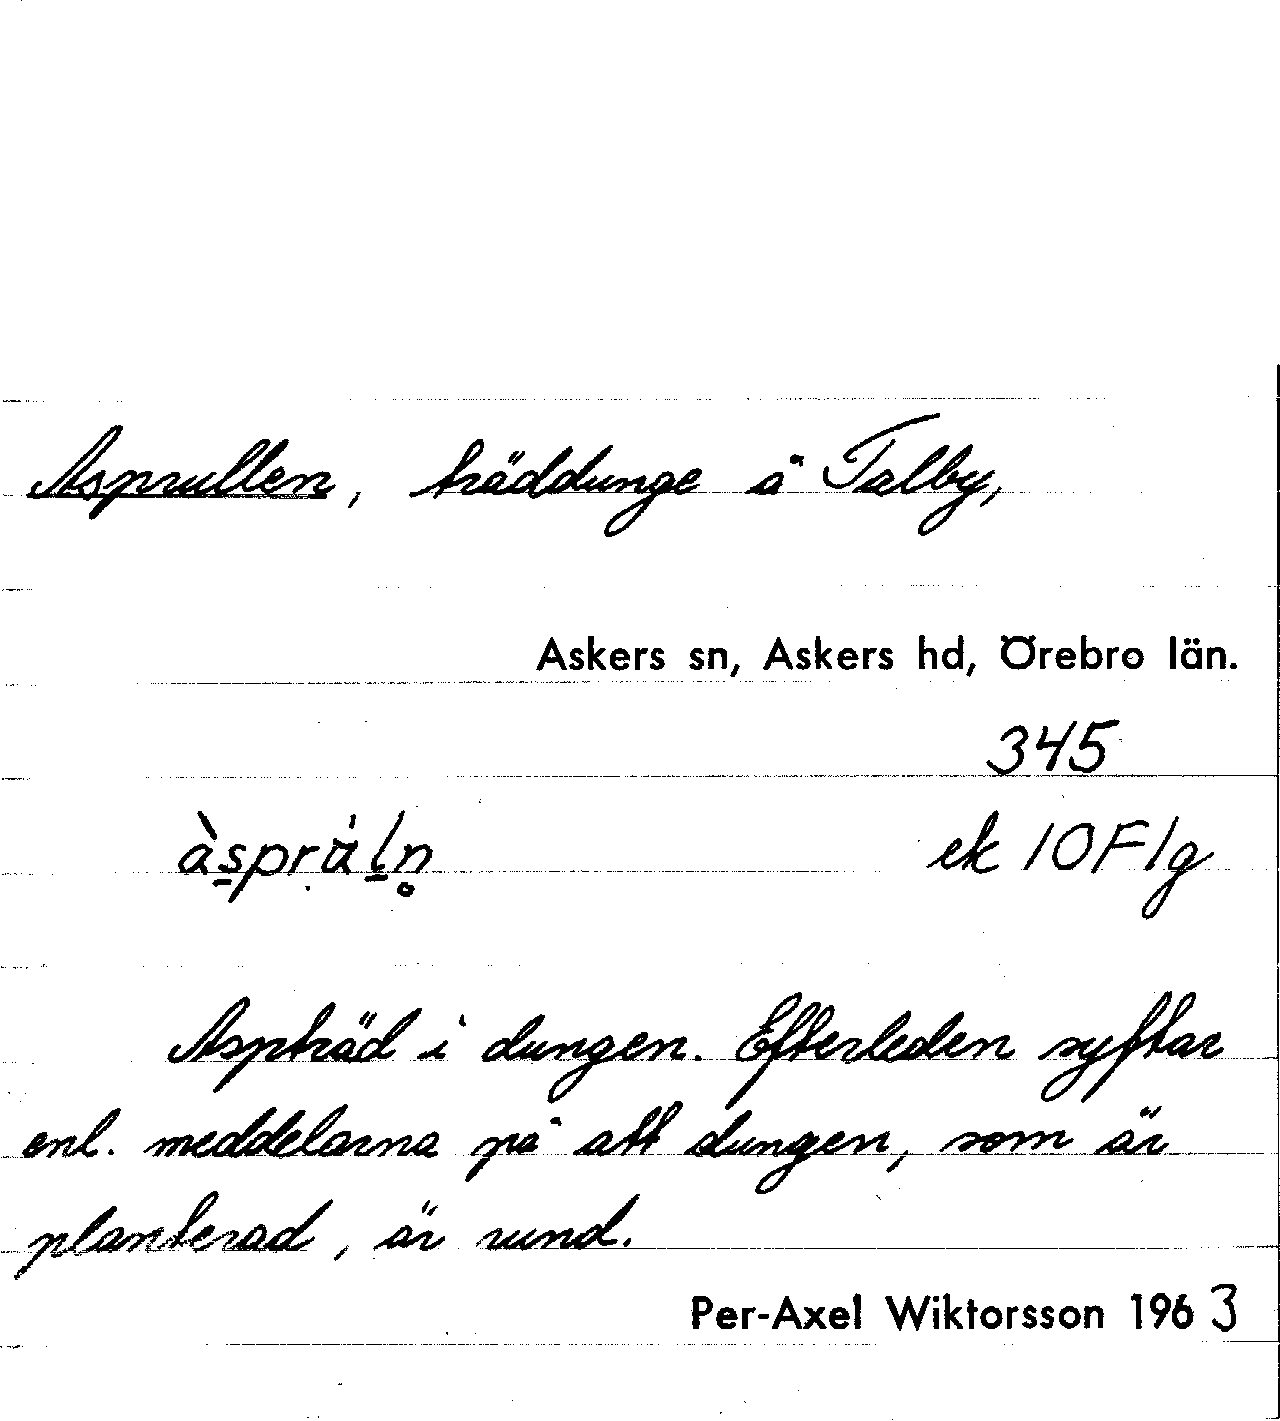 Asprullen, träddunge å Talby,
Askers sn, Askers hd, Örebro län.
345
ek 10F1g
Aspträd i dungen. Efterleden syftar
enl. meddelarna på att dungen, som är
planterad, är rund.
Per-Axel Wiktorsson 1963